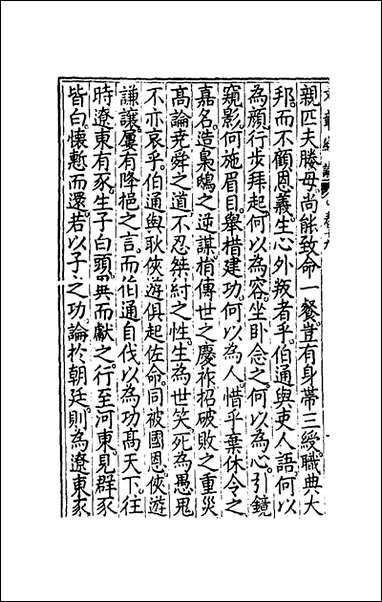 親匹夫媵母尚能致命一餐豈有身帶三綬職典大
邦而不顧恩義生心外叛者乎伯通與吏人語何以
為顏行步拜起何以為容坐卧念之何以為心引鏡
窺影何施眉目舉措建功何以為人惜乎棄休令之
嘉名造梟鴟之逆謀捐傳世之慶祚招破敗之重災
高論堯舜之道不忍桀紂之性生為世笑死為愚鬼
不亦哀乎伯通與耿俠遊俱起佐命同被國恩俠遊
謙讓屢有降挹之言而伯通自伐以為功高天下往
時遼東有豕生子白頭異而獻之行至河東見群豕
皆白懷慙而還若以子之功論於朝廷則為遼東豕